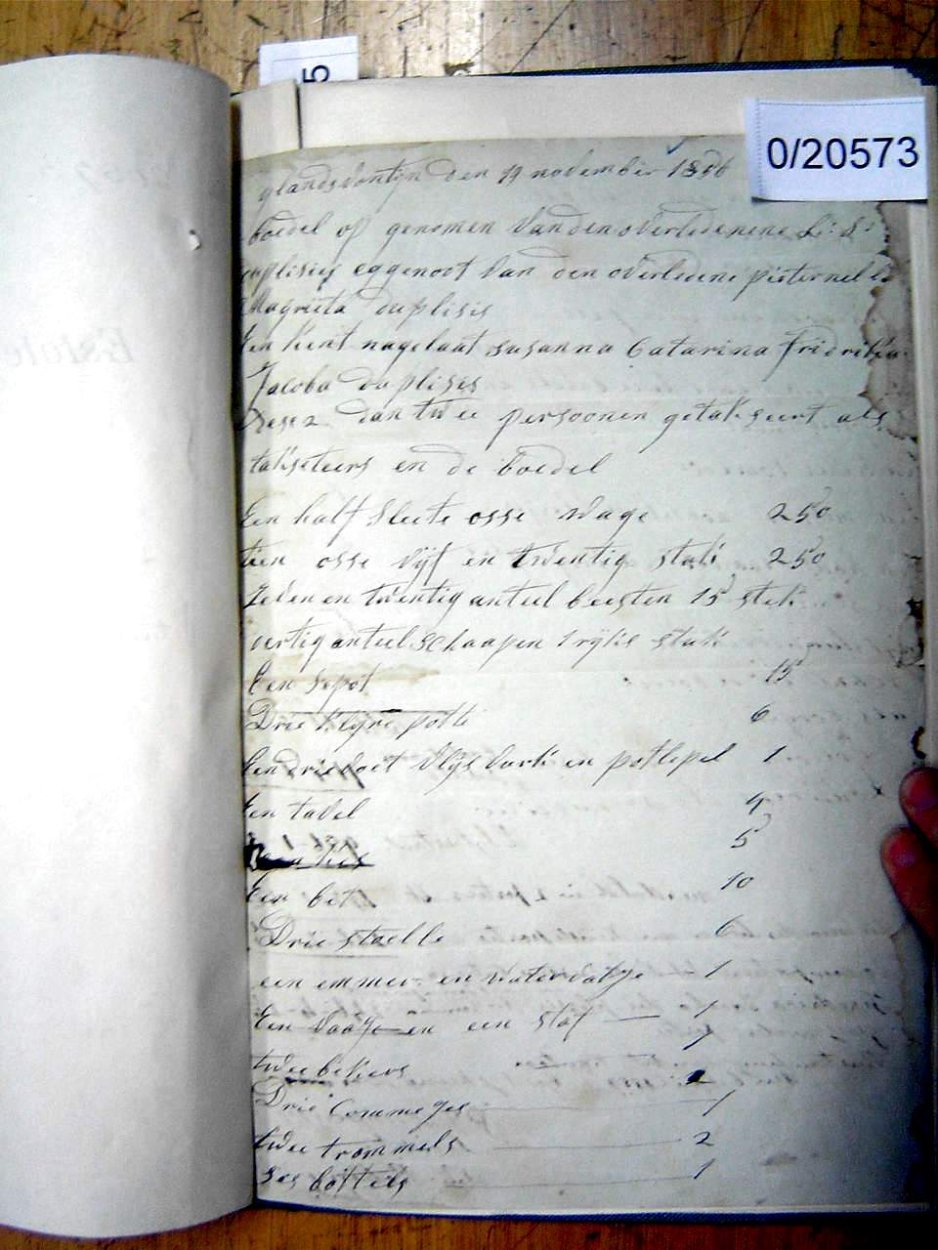 5
0/20573
glandsvontyn den 19 november 1856
boedel op genomen van den overledenene L: S:
duplisies eggenoot van den overleene pieternella
Magrieta duplisis
Een kint nagelaat susanna Catarina Friderika
Jacoba duplises
dan twee persoonen getakseert als
takseteers en de boedel
Een half sleete osse wage 250
tien osse vyf en twentig stuk 250
seven en twentig anteel beesten 15 stuk
vertig anteel schaapen stuk
Een sepot 15
Drie kleyne potte 6
Een drievoet vlys vurk en potlepel 1
Een tavel 4
5
Een bet 10
Drie stoelle 6
een emmer en watervatye 1
Een vaatje en een 1
twee bekers
Drie Commeges 1
twee trommels 2
Ses bottels 1